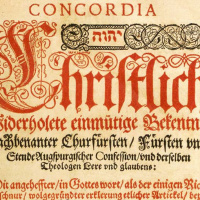 CONCORDIA
יהוה
Christlich
Widerholete einmütige Bekentn
achbenanter Churfürsten / Fürsten vn
Stende Augspurgischer Confession / vnd derselben
Theologen Lere vnd glaubens:
Mit angeheffter / in Gottes wort / als der einigen Ric
schnur / wolgegründter erklerung etlicher Artickel / be